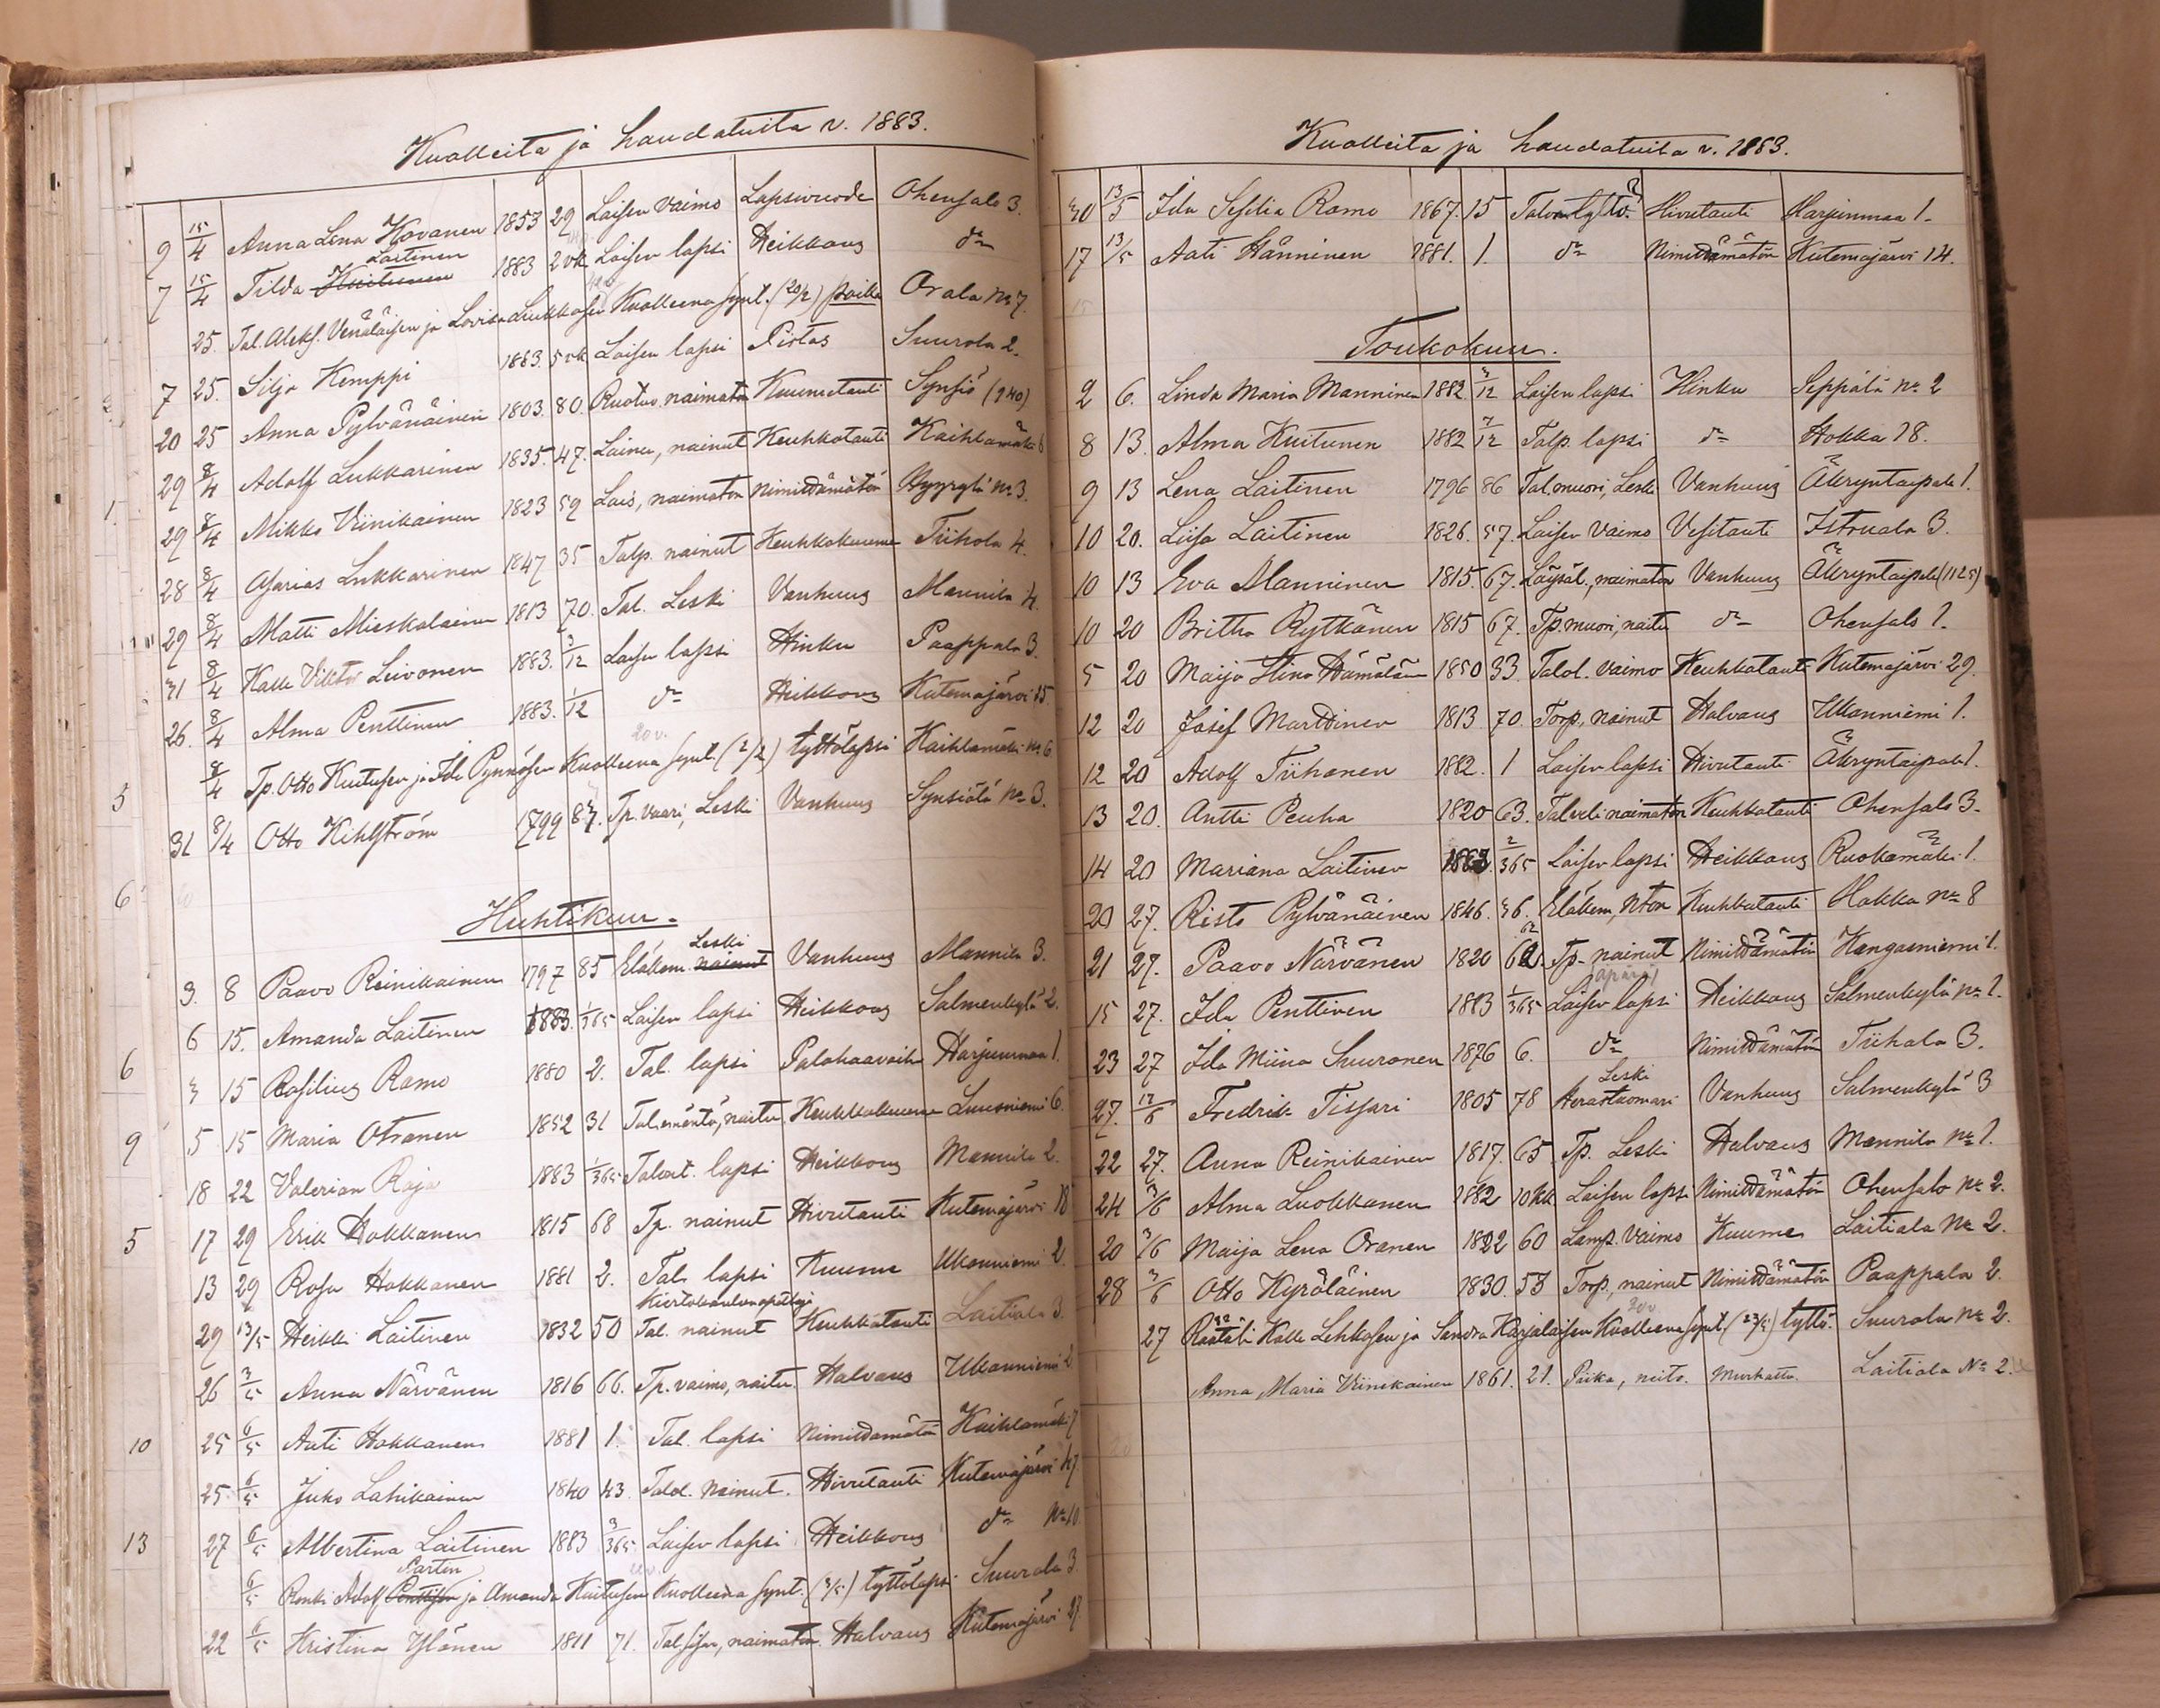 Kuolleita ja haudatuita v. 1883.
9 15/4 Anna Lena Kovanen 1853 29 Laisen vaimo Lapsivuode Ohensalo 3.
7 15/4 Tilda Kuitunen Laitinen 1883 2 vk Laisen lapsi Heikkous d:o
25. Tal. Aleks. Venäläisen ja Lovisa Liukkosen Kuolleena synt. (20/2) poika Orala No 7.
7 25. Silja Kemppi 1883 5 vk Laisen lapsi Pistos Suurola 2.
20 25 Anna Pylvänäinen 1803. 80. Ruotuv. naimaton Kuumetauti Synsiö (240)
29 8/4 Adolf Lukkarinen 1835. 47. Lainen, nainut Keuhkotauti Kaihlamäki 6
29 8/4 Mikko Viinikainen 1823 59 Lais, naimaton Nimittämätön Hyyrylä No 3.
28 8/4 Asarias Lukkarinen 1847 35 Talp. nainut Keuhkokuume Tiihola 4.
29 8/4 Matti Mieskolainen 1813 70. Tal. Leski Vanhuus Mannila 4.
31 8/4 Kalle Viktor Leivonen 1883. 3/12 Laisen lapsi Hinku Paappala 3.
26. 8/4 Alma Penttinen 1883. 1/12 d:o Heikkous Kutemajärvi 15
8/4 Tp. Otto Kuitusen ja Ida Pynnösen Kuolleena synt. (2/2) tyttölapsi Kaihlamäki No 6
31 8/4 Otto Kihlström 1799 83. Tp. vaari, Leski Vanhuus Synsiölä No 3.
Huhtikuu.
3. 8 Paavo Reinikainen 1797 85 Eläkem. nainut Leski Vanhuus Mannila 3.
6 15. Amanda Laitinen 1883. 1/365 Laisen lapsi Heikkous Salmenkylä 2.
3 15 Basilius Ramo 1880 2. Tal. lapsi Palohaavoihin Harjunmaa 1.
5 15 Maria Otranen 1852 31 Tal. emäntä, naitu Keuhkokuume Luusniemi 6.
18 22 Valerian Raja 1883 1/365 Talvut. lapsi Heikkous Mannila 2.
17 29 Erik Hokkanen 1815 68 Tp. nainut Hivutauti Kutemajärvi 18
13 29 Rosa Hokkanen 1881 2. Tal. lapsi Kuume Ukonniemi 2.
Kiertokoulunopettaja
29 13/5 Heikki Laitinen 1832 50 Tal. nainut Keuhkotauti Laitiala 3.
26 3/5 Anna Närvänen 1816 66. Tp. vaimo, naitu. Halvaus Ukonniemi 2.
25 6/5 Aati Hokkanen 1881 1. Tal. lapsi Nimittämätön Kaihlamäki 7
25. 6/5 Juho Lahikainen 1840 43. Talol. nainut. Hivutauti Kutemajärvi 47.
27 6/5 Albertina Laitinen 1883 3/365 Laisen lapsi Heikkous d:o No 10
6/5 Renki Adolf Penttisen Parton ja Amanda Kuitusen Kuolleena synt. (3/5) tyttölapsi Suurola 3
22 6/5 Kristina Ylönen 1811 71. Tal. sisar, naimaton. Halvaus Kutemajärvi 27.
Kuolleita ja haudatuita v. 1883.
30 13/5 Ida Sesilia Ramo 1867. 15 Talon tyttö. Hivutauti Harjunmaa 1.
17 13/5 Aati Hänninen 1881. 1. d:o Nimittämätön Kutemajärvi 14.
Toukokuu.
2 6. Linda Maria Manninen 1882. 3/12 Laisen lapsi Hinku Seppälä No 2
8 13. Alma Kuitunen 1882 7/12 Talp. lapsi d:o Hokka 18.
9 13 Lena Laitinen 1796 86 Tal. muori, Leski Vanhuus Äkryntaipale 1.
10 20. Liisa Laitinen 1826. 57. Laisen vaimo Vesitauti Istruala 3.
10 13 Eva Manninen 1815. 67. Löysäl., naimaton Vanhuus Äkryntaipale (1125)
10 20 Britha Rytkönen 1815 67. Tp. muori, naitu d:o Ohensalo 1.
5 20 Maija Stina Hämäläinen 1850 33. Talol. vaimo Keuhkotauti Kutemajärvi 29.
12 20 Josef Marttinen 1813 70. Torp, nainut Halvaus Ukonniemi 1.
12 20 Adolf Tiihonen 1882. 1 Laisen lapsi Hivutauti Äkryntaipale 1.
13 20. Antti Peuha 1820 63. Tal. veli naimaton Keuhkotauti Ohensalo 3.
14 20 Mariana Laitinen 1883. 2/365 Laisen lapsi Heikkous Ruokomäki 1.
20 27. Risto Pylvänäinen 1846. 36. Eläkem, Nton Keuhkotauti Hokka No 8
21 27. Paavo Närvänen 1820 62. Tp. nainut Nimittämätön Kangasniemi 1.
15 27. Ida Penttinen 1883 1/365 Laisen lapsi Heikkous Salmenkylä No 1.
23 27 Ida Miina Suuronen 1876 6. d:o Nimittämätön Tiihola 3.
27. 17/6 Fredrik Tissari 1805 78 Herastuomari Leski Vanhuus Salmenkylä 3
22 27. Anna Reinikainen 1817. 65. Tp. Leski Halvaus Mannila No 1.
24 3/6 Alma Luokkanen 1882 10 kk. Laisen lapsi Nimittämätön Ohensalo No 2.
20 3/6 Maija Lena Oranen 1822 60 Lamp. vaimo Kuume Laitiala No 2.
28 3/6 Otto Kyröläinen 1830. 53 Torp, nainut Nimittämätön Paappala 2.
27 Räätäli Kalle Lehkosen ja Sandra Karjalaisen Kuolleena synt. (23/5) tyttö. Suurola No 2.
Anna, Maria Viinikainen 1861. 21. Piika, neito. Murhattu. Laitiala No 2.